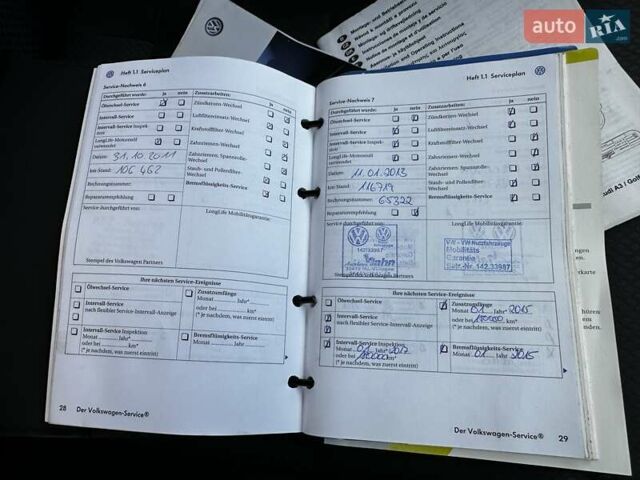 auto RIA .com
Montage- und Betriebsan
Notice de montage et d'utilisation
Fitting and Operating Instructions
udi A3 / Golf
Heft 1.1 Serviceplan
Service-Nachweis 6
Durchgeführt wurde: ja nein Zusatzarbeiten: ja nein
Ölwechsel-Service Zündkerzen-Wechsel
Intervall-Service Luftfiltereinsatz-Wechsel
Intervall-Service Inspektion Kraftstofffilter-Wechsel
LongLife-Motorenöl verwendet Zahnriemen-Wechsel
Datum: 31.10.2011 Zahnriemen-Spannrolle-Wechsel
km-Stand: 106 462 Staub- und Pollenfilter-Wechsel
Rechnungsnummer: Bremsflüssigkeits-Service
Reparaturempfehlung
Service durchgeführt von: LongLife Mobilitätsgarantie:
Stempel des Volkswagen Partners
Ihre nächsten Service-Ereignisse
Ölwechsel-Service
Intervall-Service
nach flexibler Service-Intervall-Anzeige
Zusatzumfänge
Monat Jahr*
oder bei km*
(* je nachdem, was zuerst eintritt)
Intervall-Service Inspektion
Monat Jahr*
oder bei km*
(* je nachdem, was zuerst eintritt)
Bremsflüssigkeits-Service
Monat Jahr
28 Der Volkswagen-Service®
Heft 1.1 Serviceplan
Service-Nachweis 7
Durchgeführt wurde: ja nein Zusatzarbeiten: ja nein
Ölwechsel-Service Zündkerzen-Wechsel
Intervall-Service Luftfiltereinsatz-Wechsel
Intervall-Service Inspektion Kraftstofffilter-Wechsel
LongLife-Motorenöl verwendet Zahnriemen-Wechsel
Datum: 11.01.2013 Zahnriemen-Spannrolle-Wechsel
km-Stand: 116719 Staub- und Pollenfilter-Wechsel
Rechnungsnummer: 65322 Bremsflüssigkeits-Service
Reparaturempfehlung
Service durchgeführt von: LongLife Mobilitätsgarantie:
V/V - VW Nutzfahrzeuge
Mobilitäts
Garantie
Betr.-Nr. 142.33987
Stempel des Volkswagen Partners
Ihre nächsten Service-Ereignisse
Ölwechsel-Service
Intervall-Service
nach flexibler Service-Intervall-Anzeige
Zusatzumfänge
Monat 01 Jahr* 2015
oder bei km*
(* je nachdem, was zuerst eintritt)
Intervall-Service Inspektion
Monat 01 Jahr* 2017
oder bei km*
(* je nachdem, was zuerst eintritt)
Bremsflüssigkeits-Service
Monat 01 Jahr 2015
Der Volkswagen-Service® 29